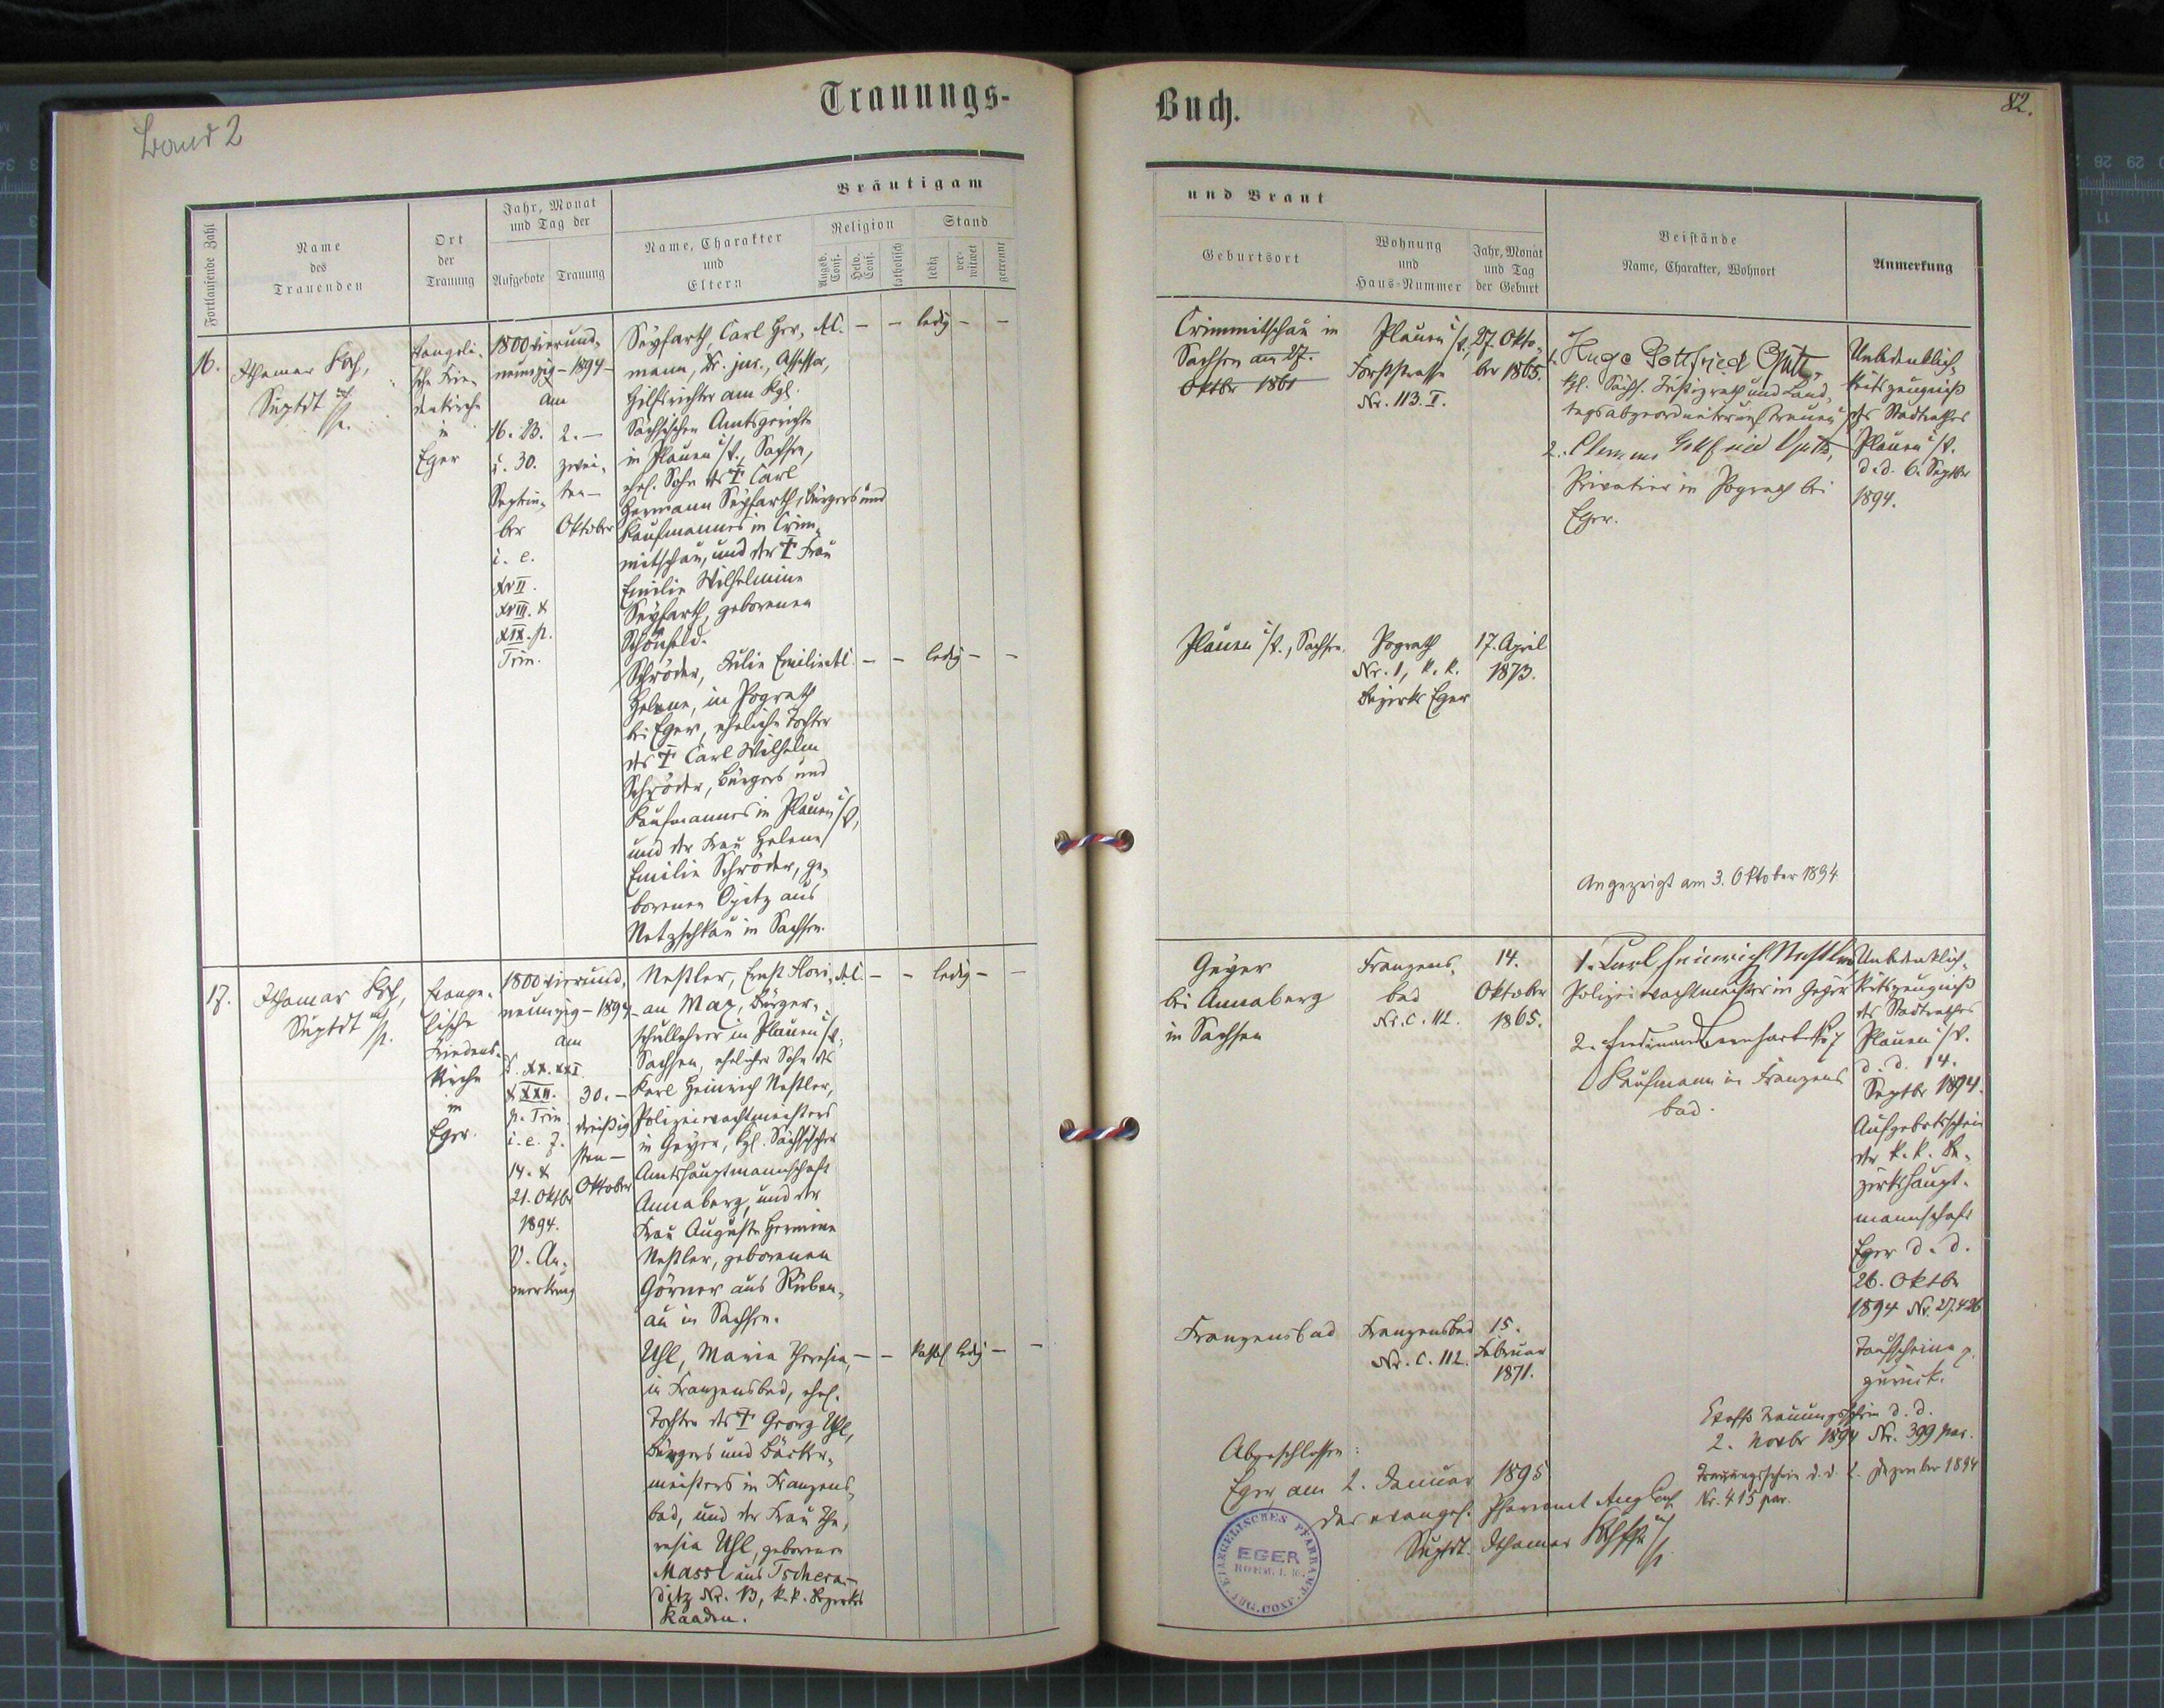 Trauungs-
Band 2
Bräutigam
Fortlaufende Zahl
Name
des
Trauenden
Ort
der
Trauung
Jahr, Monat
und Tag der
Aufgebote
Trauung
Name, Charakter
und
Eltern
Religion
Augsb. Conf.
Helv. Conf.
katholisch
Stand
ledig
verwitwet
getrennt
16.
Ithamar Koch,
Suptdt
Evangeli-
sche Frie-
denkirche
in
Eger
1800 vierund-
neunzig - 1894 -
am
16. 23.
u. 30.
Septem-
ber
i. e.
XVII.
XVIII. &
XIX. p.
Trin.
2. —
zwei-
ten —
Oktober
Seyfarth, Carl Her-
mann, Dr. jur., Assessor,
Hilfsrichter am Kgl.
Sächsischen Amtsgerichte
in Plauen i/V., Sachsen,
ehel. Sohn des † Carl
Hermann Seyfarth, Bürgers und
Kaufmannes in Crim-
mitschau, und der † Frau
Emilie Wilhelmine
Seyfarth, geborenen
Schönfeld.
AC. — — ledig — —
Schröder, Julie Emilie
Helene, in Pograth
bei Eger, eheliche Tochter
des † Carl Wilhelm
Schröder, Bürgers und
Kaufmannes in Plauen i/V,
und der Frau Helene
Emilie Schröder, ge-
borenen Opitz aus
Netzschkau in Sachsen.
AC. — — ledig — —
17.
Ithamar Koch,
Suptdt
Evange-
lische
Friedens-
kirche
in
Eger.
1800 vierund-
neunzig - 1894 -
am
D. XX. XXI.
& XXII.
p. Trin.
i. e. 7.
14. &
21. Oktbr
1894.
V. An-
merkung
30. —
dreißig
sten —
Oktober
Nestler, Ernst Flori-
an Max, Bürger-
schullehrer in Plauen i/V,
Sachsen, ehelicher Sohn des
Karl Heinrich Nestler,
Polizeiwachtmeisters
in Geyer, Kgl. Sächsischer
Amtshauptmannschaft
Annaberg, und der
Frau Auguste Hermine
Nestler, geborenen
Görner aus Rüben-
au in Sachsen.
AC. — — ledig — —
Uhl, Maria Theresia,
in Franzensbad, ehel.
Tochter des † Georg Uhl,
Bürgers und Bäcker-
meisters in Franzens-
bad, und der Frau The-
resia Uhl, geborenen
Massl aus Tschera-
ditz Nr. 13, k.k. Bezirks
Kaaden.
— — kathol ledig — —
Buch.
82.
und Braut
Geburtsort
Wohnung
und
Haus-Nummer
Jahr, Monat
und Tag
der Geburt
Beistände
Name, Charakter, Wohnort
Anmerkung
Crimmitschau in
Sachsen am 27.
Oktbr 1861
Plauen i/V.,
Forststrasse
Nr. 113. I.
27. Okto-
ber 1865.
1. Hugo Gottfried Opitz,
kgl. Sächs. Justizrath und Land-
tagsabgeordneter aus Treuen i/V
2. Clemens Gottfried Opitz,
Privatier in Pograth bei
Eger.
Unbedenklich-
keitszeugniß
des Stadtrathes
Plauen i/V.
d.d. 6. Septbr
1894.
Plauen i/V., Sachsen.
Pograth
Nr. 1, k. k.
Bezirks Eger
17. April
1873.
Angezeigt am 3. Oktober 1894
Geyer
bei Annaberg
in Sachsen
Franzens-
bad
Nr. C. 112.
14.
Oktober
1865.
1. Carl Heinrich Nestler
Polizeiwachtmeister in Geyer
2. Ferdinand
Kaufmann in Franzens
bad.
Unbedenklich-
keitszeugniß
des Stadtrathes
Plauen i/V.
d. d. 14.
Septbr 1894.
Aufgebotsschein
der k. k. Be-
zirkshaupt-
mannschaft
Eger d. d.
26. Oktbr
1894 Nr. 27.426
Taufscheine z.
zurück.
Franzensbad
Franzensbad
Nr. C. 112.
15.
Februar
1871.
Trauungsschein d. d.
2. Novbr 1894 Nr. 399 par.
Trauungsschein d. d. 2. Dezember 1894
Nr. 415 par.
Abgeschlossen:
Eger am 2. Januar 1895
das evangel. Pfarramt Augs Conf.
Suptdt. Ithamar Koch
EVANGELISCHES PFARRAMT
EGER
BÖHM.
AUG. CONF.